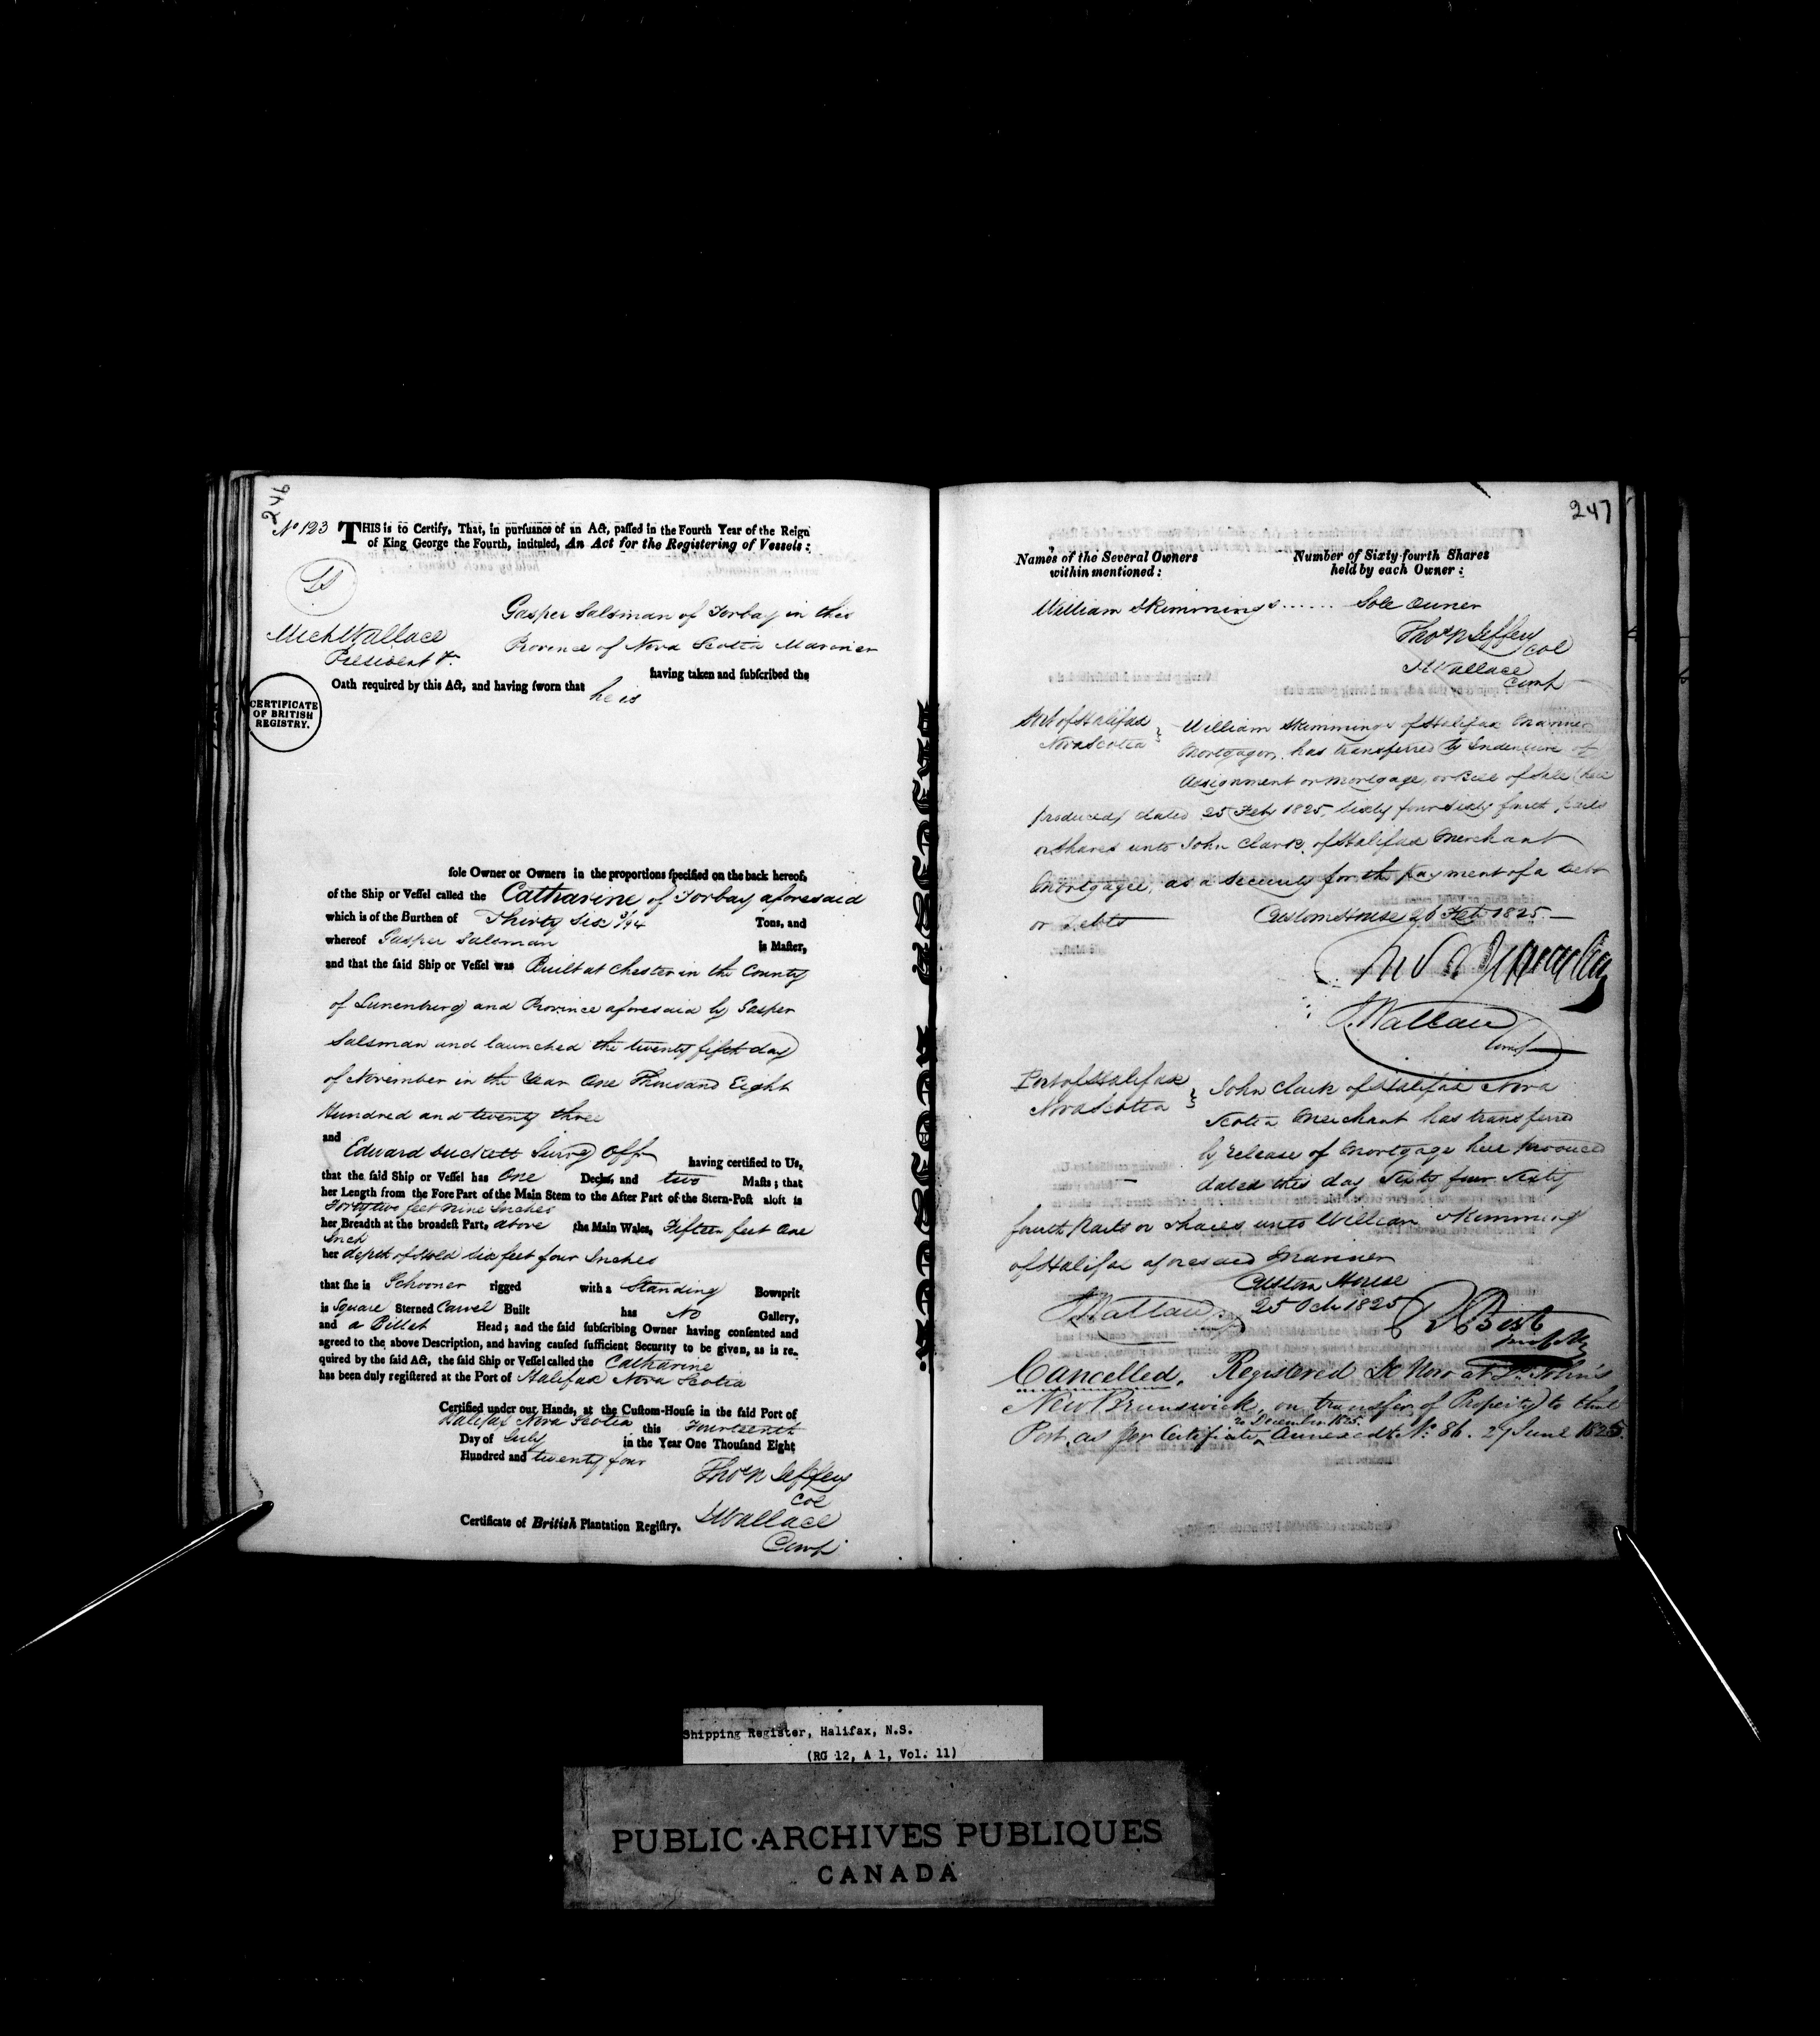 246
No 123 THIS is to Certify, That, in pursuance of an Act, passed in the Fourth Year of the Reign
of King George the Fourth, intituled, An Act for the Registering of Vessels:
LS
Gasper Salsman of Torbay in the
Province of Nova Scotia Mariner
Mich Wallace
President &.
having taken and subscribed the
Oath required by this Act, and having sworn that he is
CERTIFICATE
OF BRITISH
REGISTRY.
sole Owner or Owners in the proportions specified on the back hereof,
of the Ship or Vessel called the Catharine of Torbay aforesaid
which is of the Burthen of Thirty Six 31/94 Tons, and
whereof Gasper Salsman is Master,
and that the said Ship or Vessel was Built at Chester in the County
of Lunenburg and Province aforesaid by Gasper
Salsman and launched the twenty fifth day
of November in the Year One Thousand Eight
Hundred and twenty three
and
Edward Duckett Survg Offr having certified to Us,
that the said Ship or Vessel has One Decks, and two Masts; that
her Length from the Fore Part of the Main Stem to the After Part of the Stern-Post aloft is
Forty two feet Nine Inches
her Breadth at the broadest Part, above the Main Wales, Fifteen feet One
Inch
her depth of Hold Six feet four Inches
that she is Schooner rigged with a Standing Bowsprit
is Square Sterned Carvel Built has No Gallery,
and a Billet Head; and the said subscribing Owner having consented and
agreed to the above Description, and having caused sufficient Security to be given, as is re-
quired by the said Act, the said Ship or Vessel called the Catharine
has been duly registered at the Port of Halifax Nova Scotia
Certified under our Hands, at the Custom-House in the said Port of
Halifax Nova Scotia this Fourteenth
Day of July in the Year One Thousand Eight
Hundred and twenty four
Thos N Jeffery
Col
Certificate of British Plantation Registry.
J Wallace
Comp
247
Names of the Several Owners
within mentioned:
Number of Sixty-fourth Shares
held by each Owner:
William Skimmings ...... Sole Owner
Thos N Jeffery
Col
J Wallace
Comp
Port of Halifax
Nova Scotia
William Skimmings of Halifax Mariner
Mortgagor, has transferred by Indenture of
Assignment or Mortgage, or Bill of Sale (here
produced) dated 25 Feby 1825, Sixty four Sixty fourth parts
or Shares unto John Clark, of Halifax Merchant
Mortgagee, as a Security for the payment of a Debt
or Debts
Custom House 26 Feb 1825.
J Wallace
Comp
Port of Halifax
Nova Scotia
John Clark of Halifax Nova
Scotia Merchant has transferred
by release of Mortgage here produced
dated this day Sixty four Sixty
fourth Parts or Shares, unto William Skimming
of Halifax aforesaid Mariner
Custom House
25 Oct 1825
J Wallace
Best
Cancelled. Registered De Novo at St. John's
New Brunswick, on transfer of Property to that
20 December 1825.
Port, as per Certificate Annexed to No. 86. 27 June 1825.
Shipping Register, Halifax, N.S.
(RG 12, A 1, Vol. 11)
PUBLIC·ARCHIVES PUBLIQUES
CANADA